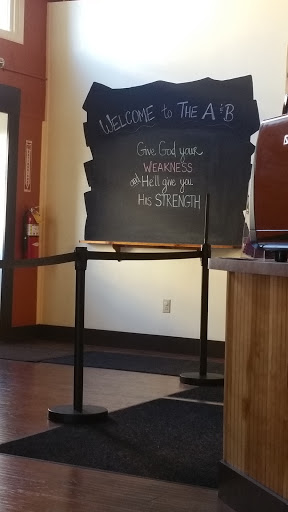 WELCOME to THE A&B
Give God your
WEAKNESS
and He'll give you
His STRENGTH